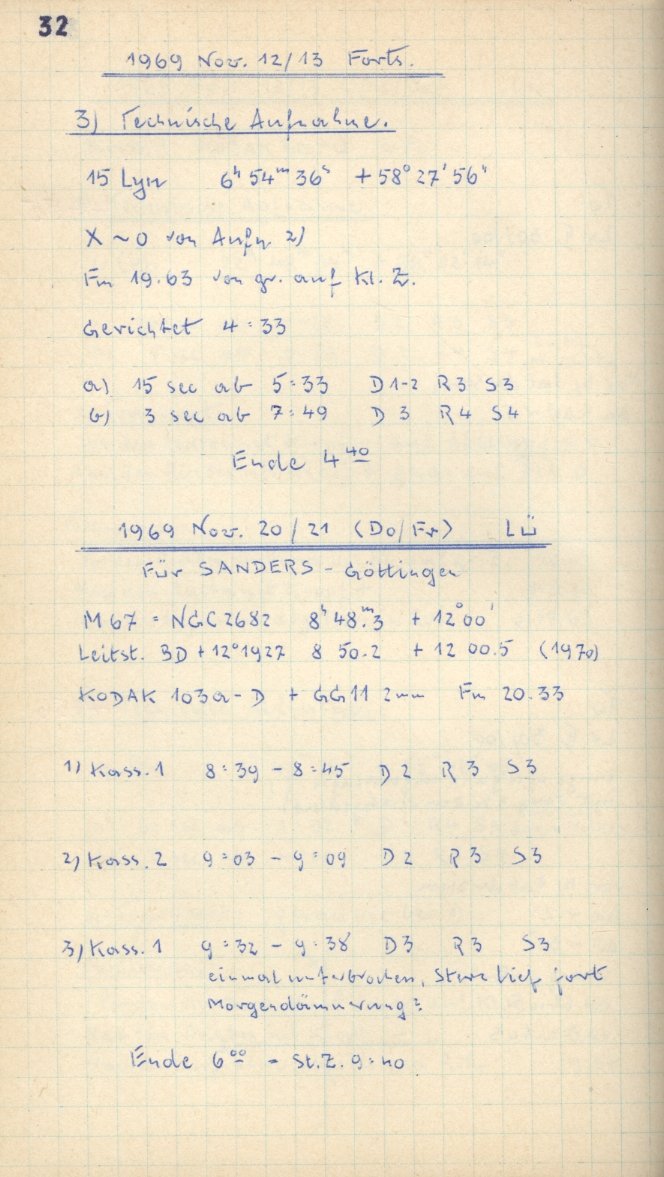 32
1969 Nov. 12/13 Forts.
3) Technische Aufnahme.
15 Lyn 6ʰ 54ᵐ 36ˢ + 58° 27' 56"
X ~ 0 von Aufn 2)
Fm 19.63 von gr. auf Kl. Z.
Gerichtet 4:33
a) 15 sec ab 5:33 D 1-2 R 3 S 3
b) 3 sec ab 7:49 D 3 R 4 S 4
Ende 4⁴⁰
1969 Nov. 20/21 (Do/Fr) LÜ
Für SANDERS - Göttingen
M 67 = NGC 2682 8ʰ 48ᵐ.3 + 12°00'
Leitst. BD + 12°1927 8 50.2 + 12 00.5 (1970)
KODAK 103a-D + GG11 2mm Fm 20.33
1) Kass. 1 8:39 - 8:45 D 2 R 3 S 3
2) Kass. 2 9:03 - 9:09 D 2 R 3 S 3
3) Kass. 1 9:32 - 9:38 D 3 R 3 S 3
einmal unterbrochen, Stern lief fort
Morgendämmerung!
Ende 6⁰⁰ = St.Z. 9:40